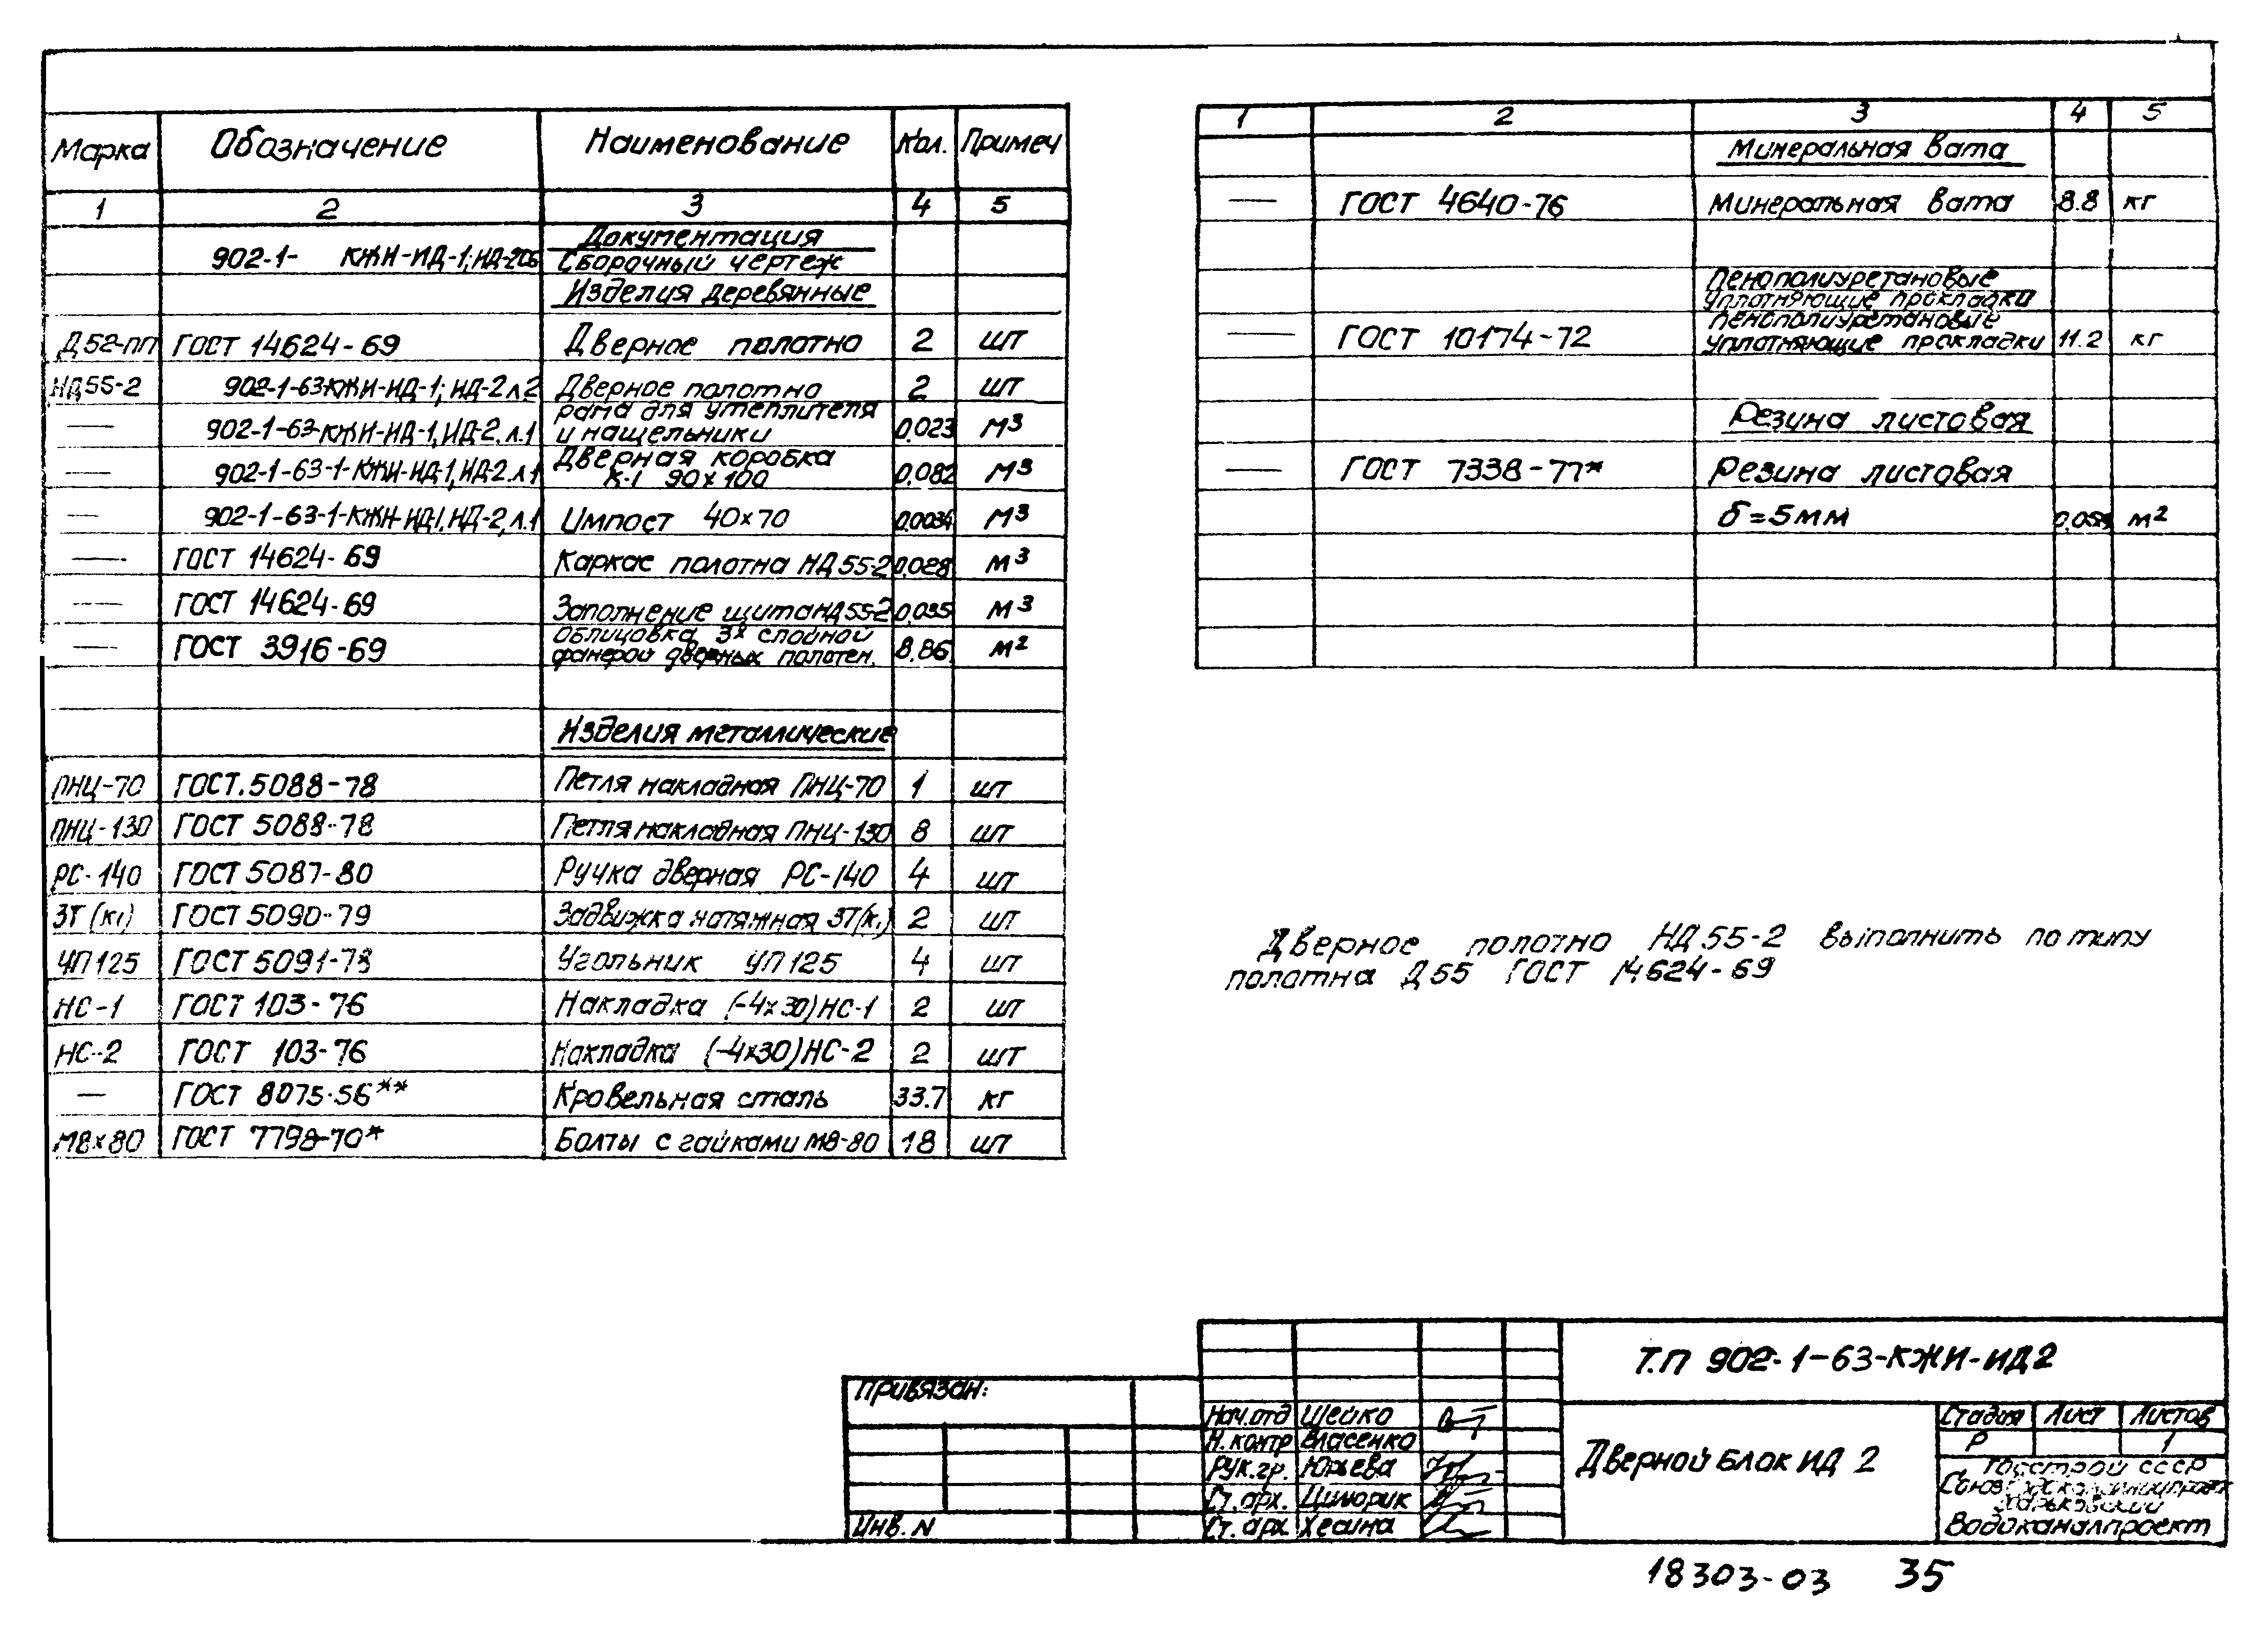 Марка Обозначение Наименование Кол. Примеч
1 2 3 4 5
Документация
902-1- КЖИ-ИД-1; ИД-2СБ Сборочный чертеж
Изделия деревянные
Д52-пп ГОСТ 14624-69 Дверное полотно 2 шт
НД55-2 902-1-63КЖИ-ИД-1; ИД-2 л.2 Дверное полотно 2 шт
рама для утеплителя
— 902-1-63-КЖИ-ИД-1, ИД-2. л.1 и нащельники 0,023 м3
Дверная коробка
— 902-1-63-1-КЖИ-ИД-1, ИД-2. л.1 К-1 90х100 0,082 м3
— 902-1-63-1-КЖИ-ИД1, ИД-2, л.1 Импост 40х70 0,0034 м3
— ГОСТ 14624-69 Каркас полотна НД55-2 0,028 м3
— ГОСТ 14624-69 Заполнение щита НД55-2 0,035 м3
Облицовка 3х слойной
— ГОСТ 3916-69 фанерой дверных полотен. 8,86 м2
Изделия металлические
ПНЦ-70 ГОСТ.5088-78 Петля накладная ПНЦ-70 1 шт
ПНЦ-130 ГОСТ 5088-78 Петля накладная ПНЦ-130 8 шт
РС-140 ГОСТ 5087-80 Ручка дверная РС-140 4 шт
ЗТ(К1) ГОСТ 5090-79 Задвижка натяжная ЗТ(К1) 2 шт
УП125 ГОСТ 5091-78 Угольник УП125 4 шт
НС-1 ГОСТ 103-76 Накладка (-4х30)НС-1 2 шт
НС-2 ГОСТ 103-76 Накладка (-4х30)НС-2 2 шт
— ГОСТ 8075-56** Кровельная сталь 33.7 кг
М8х80 ГОСТ 7798-70* Болты с гайками М8-80 18 шт
1 2 3 4 5
Минеральная вата
— ГОСТ 4640-76 Минеральная вата 8.8 кг
Пенополиуретановые
уплотняющие прокладки
Пенополиуретановые
— ГОСТ 10174-72 уплотняющие прокладки 11.2 кг
Резина листовая
— ГОСТ 7338-77* Резина листовая
δ=5мм м2
Дверное полотно НД55-2 выполнить по типу
полотна Д55 ГОСТ 14624-69
Привязан:
Инв. N
Нач.отд Шейко
Н.контр Власенко
Рук.гр. Юрьева
Ст.арх. Циморик
Ст.арх Хесина
Т.П 902-1-63-КЖИ-ИД2
Дверной блок ИД 2
Стадия Лист Листов
Р 1
Госстрой СССР
Союзводоканалниипроект
Харьковский
Водоканалпроект
18303-03 35